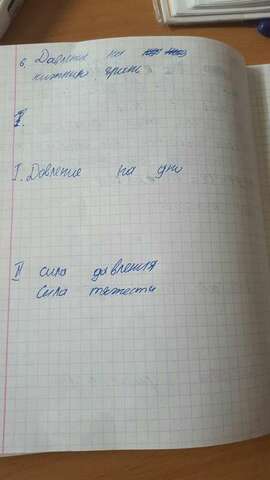 6. Давление на
нижнюю грань
I. Давление на дно
II сила давления
Сила тяжести